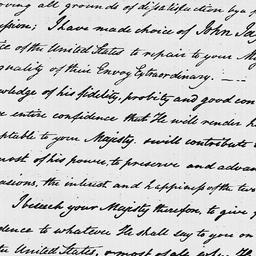 oving all grounds of dissatisfaction by a
ession; I have made choice of John Ja
ice of the United States to repair to your M
quality of their Envoy Extraordinary. —..—
owledge of his fidelity, probity and good con
e entire confidence that He will render h
ptable to your Majesty. & will contribute
most of his power, to preserve and advan
asions, the interest and happiness of the two
I beseech your Majesty therefore, to give
dence to whatever He shall say to you on
the United States, & most of all when He